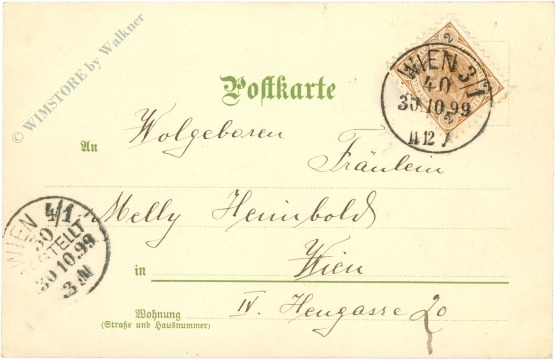 © WIMSTORE by Walkner
2
2
WIEN 3/1
40
30.10.99
II 12
Postkarte
An
Wolgeboren
Fräulein
Melly Heimbold
WIEN 4/1
50
BESTELLT
30.10.99
in
Wien
Wohnung
(Straße und Hausnummer)
IV. Heugasse 20